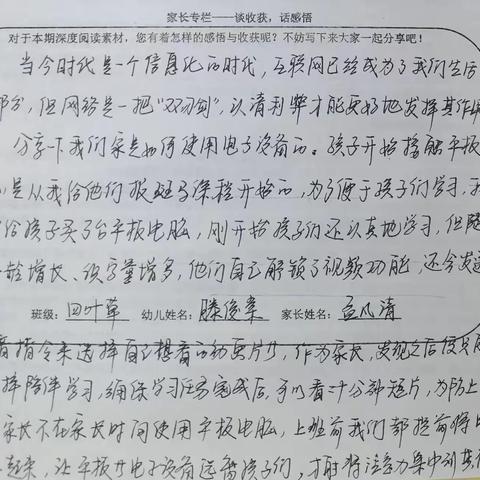 家长专栏——谈收获，话感悟
对于本期深度阅读素材，您有着怎样的感悟与收获呢？不妨写下来大家一起分享吧！
当今时代是一个信息化的时代，互联网已经成为了我们生活
部分，但网络是一把“双刃剑”，认清利弊才能更好地发挥其作用
分享一下我们家是如何使用电子设备的。孩子开始接触平板
是从我给他们报斑马课程开始的，为了便于孩子们学习，我
给孩子买了台平板电脑，刚开始孩子们还认真地学习，但随
龄增长、识字量增多，他们自己解锁了视频功能，还会发送
班级：四叶草 幼儿姓名：滕俊豪 家长姓名：孟凡清
音指令来选择自己想看的动画片，作为家长，发现之后便
择陪伴学习，确保学习任务完成后，可以看二十分钟短片，为防止
家长不在家长时间使用平板电脑，上班前我们都提前将
起来，让平板电子设备远离孩子们，才能将注意力集中到其